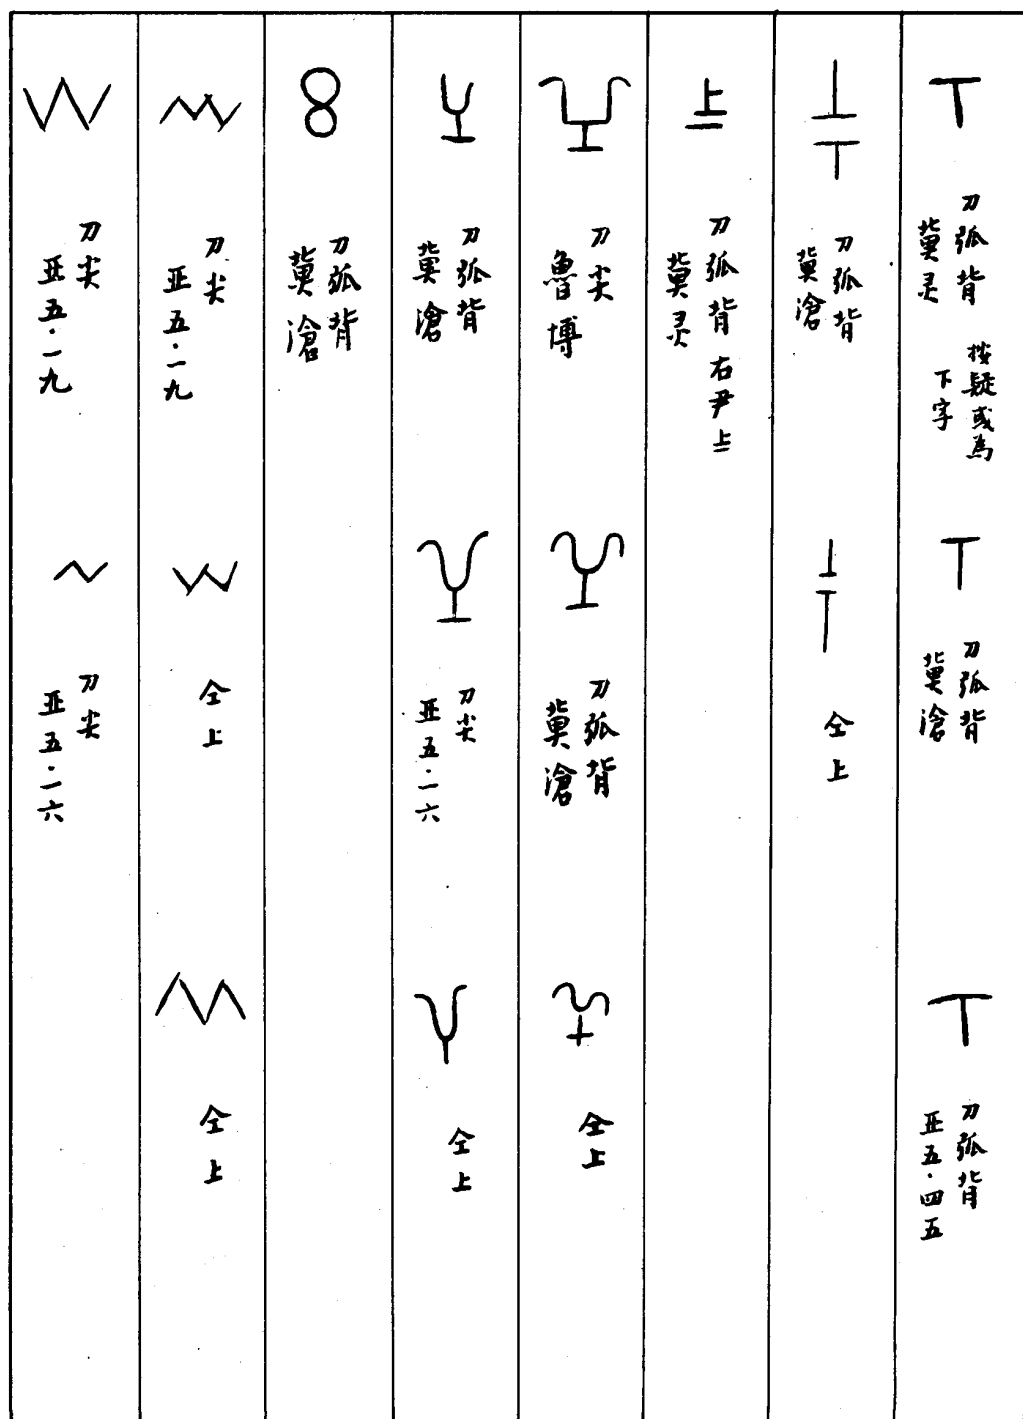 刀弧背
冀灵
按疑或為
下字
刀弧背
冀滄
刀弧背
亚五·四五
刀弧背
冀滄
仝上
刀弧背
冀灵
右尹上
刀尖
魯博
刀弧背
冀滄
仝上
刀弧背
冀滄
刀尖
亚五·一六
仝上
刀弧背
冀滄
刀尖
亚五·一九
仝上
仝上
刀尖
亚五·一九
刀尖
亚五·一六